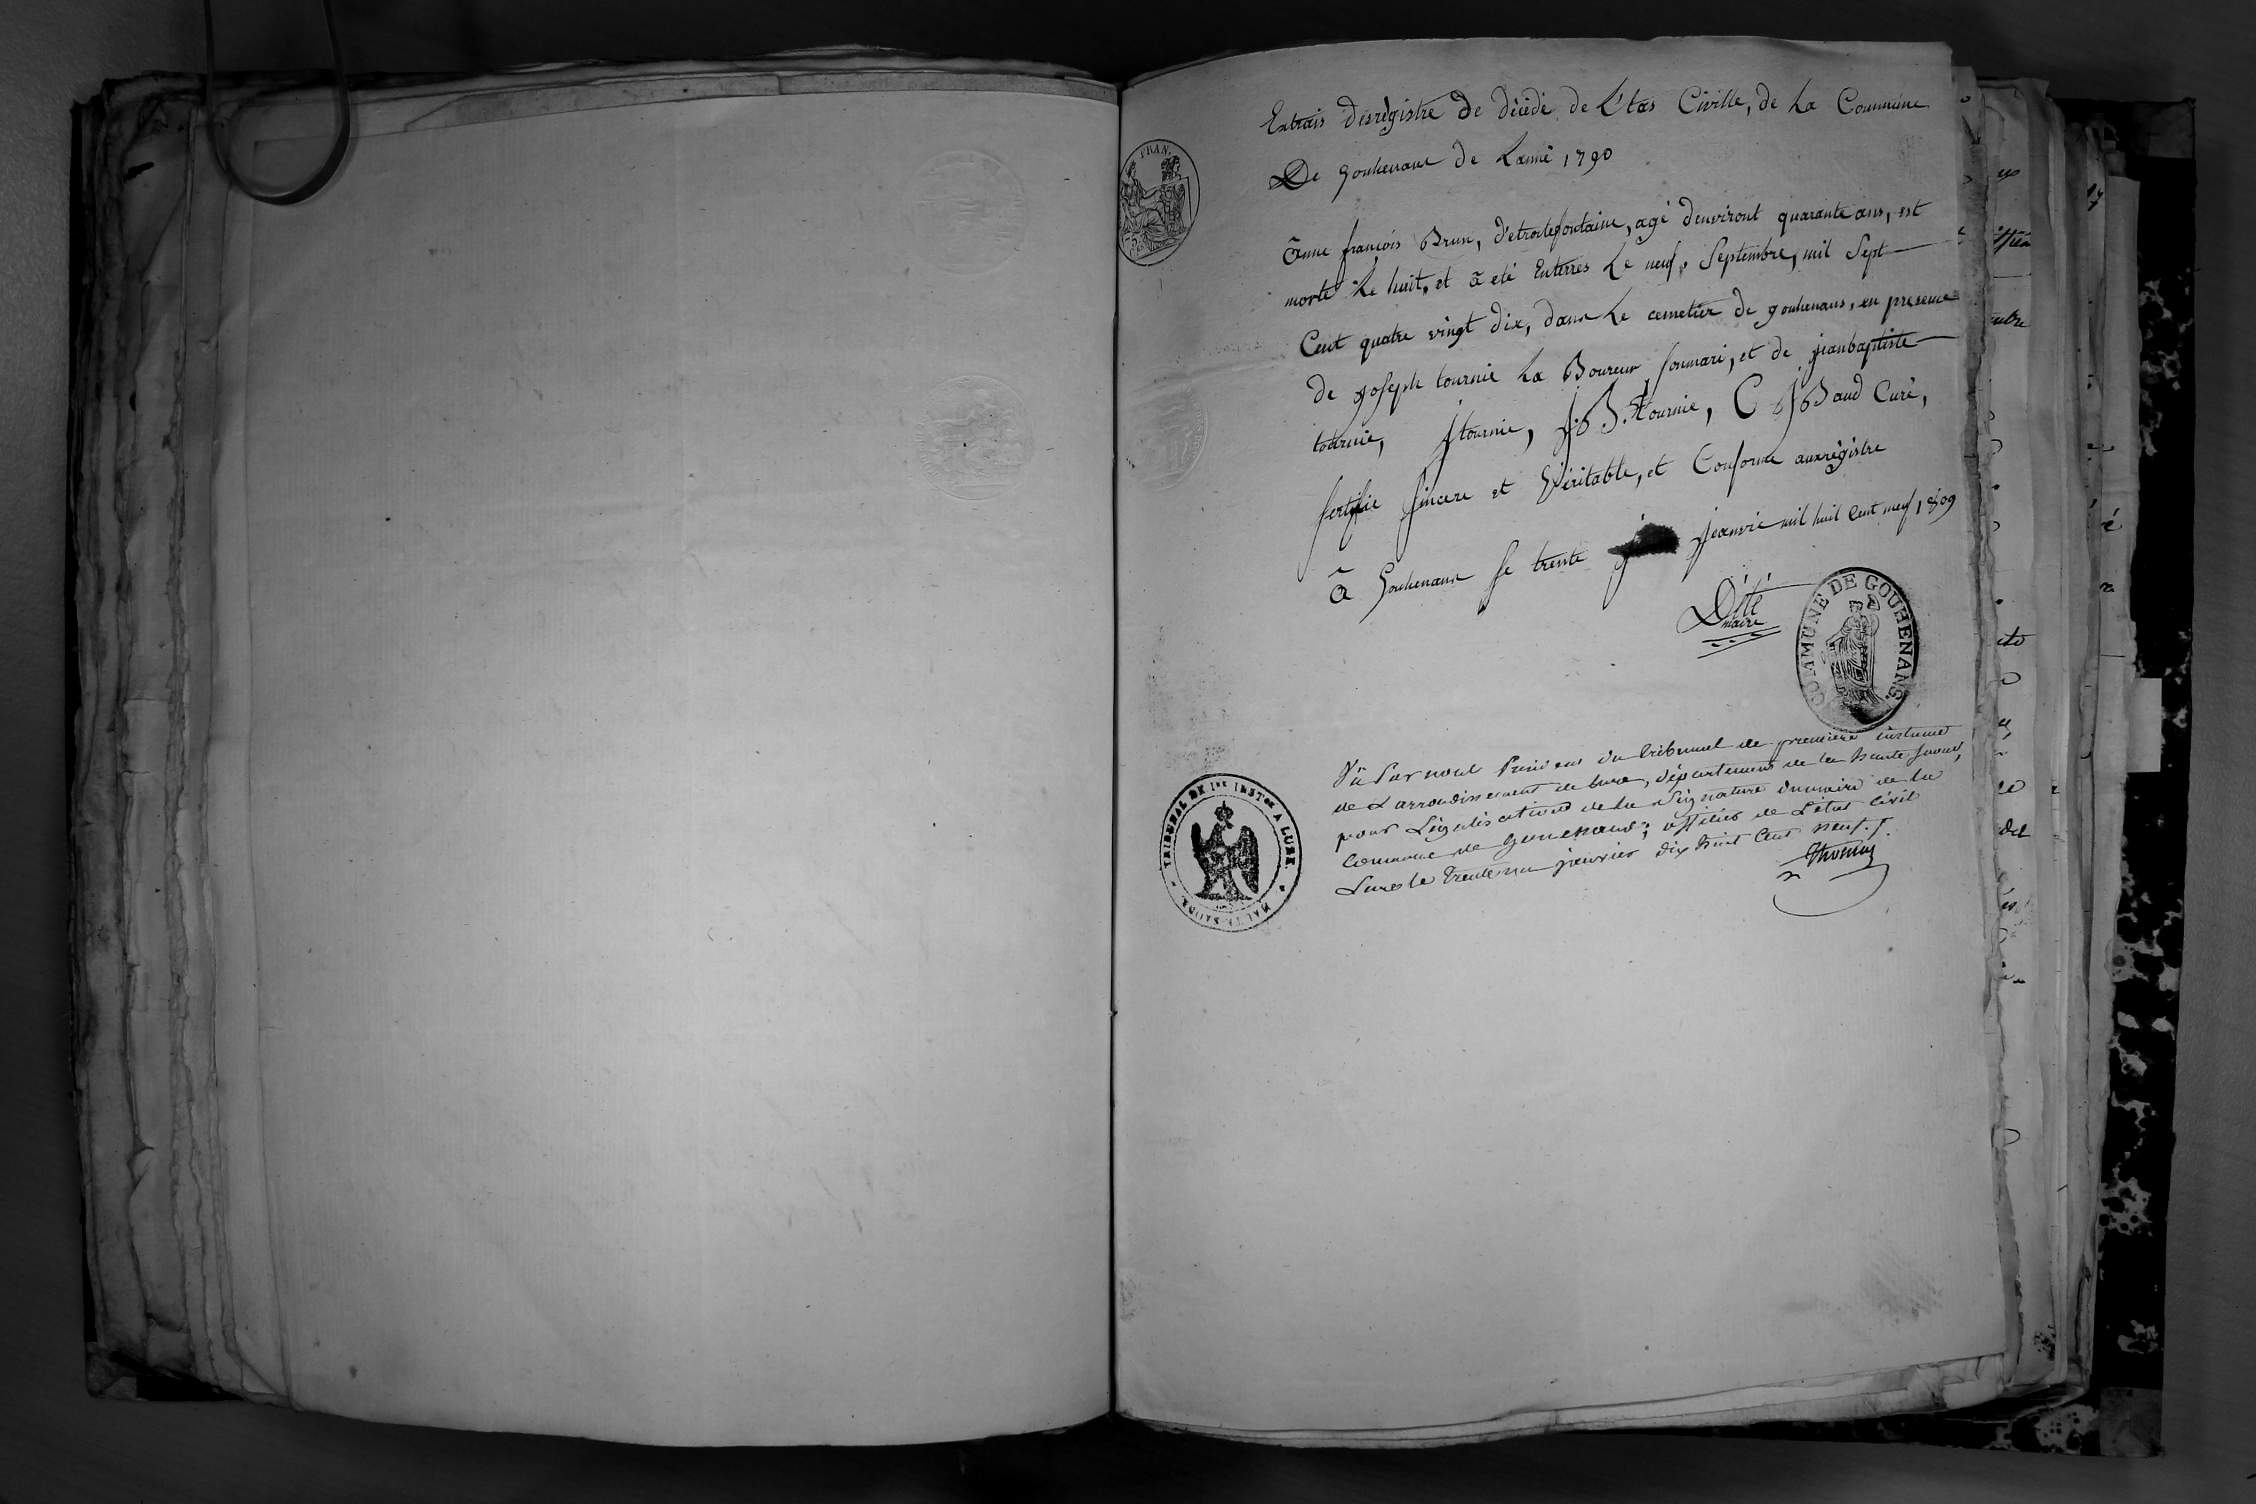 Extrais desrègistre de dècèdé de L'état Civille, de La Commune
De gouhenant de Lannè 1790
FRAN.
ãnne françois Brun, d'etroitefontaine, agé denviront quarante ans, est
morte Le huit, et ã eté Enterrés Le neuf, Septembre, mil Sept
Cent quatre vingt dix, dans Le cemetier de gouhenans, en presence
de joseph tournie La Boureur sonmari, et de jeanbaptiste
tournie, J tournie, J.B. tournie, C J Baud Curé,
sertifie sincere et Véritable, et Conforme auxrègistre
ã Gouhenans le trente jeanvié mil huit Cent neuf 1809
maire
COMMUNE DE GOUHENANS.
Vû Par nous Président du tribunal de première instance
de L'arrondissement de Lure, département de la haute Saone,
pour Légalisation de la Signature du maire de la
Commune de Gouhenans, officier de L'état Civil
Lure le trente un janvier dix huit Cent neuf.
TRIBUNAL DE 1RE INSTCE A LURE.
HAUTE-SAONE